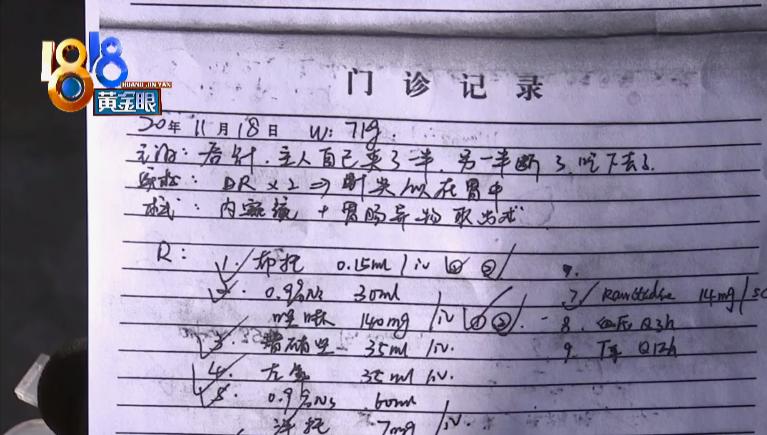 1818
HUANG JIN YAN
黄金眼
门诊记录
20年11月18日 W: 71g.
主诉: 吞针. 主人自己夹了一半, 另一半断了, 吃下去了.
DR x2 ⇒ 在胃中
内窥镜 + 胃肠异物取出术
R:
1. 布托 0.15ml / iv ① ②
2. 0.9% NS 30ml
140mg / iv ① ②. -
3. 35ml iv.
4. 左氧 35ml iv.
5. 0.9% NS 60ml
泮托 7mg / iv.
7. Ranitidine 14mg / sc
8. Q3h
9. Q12h